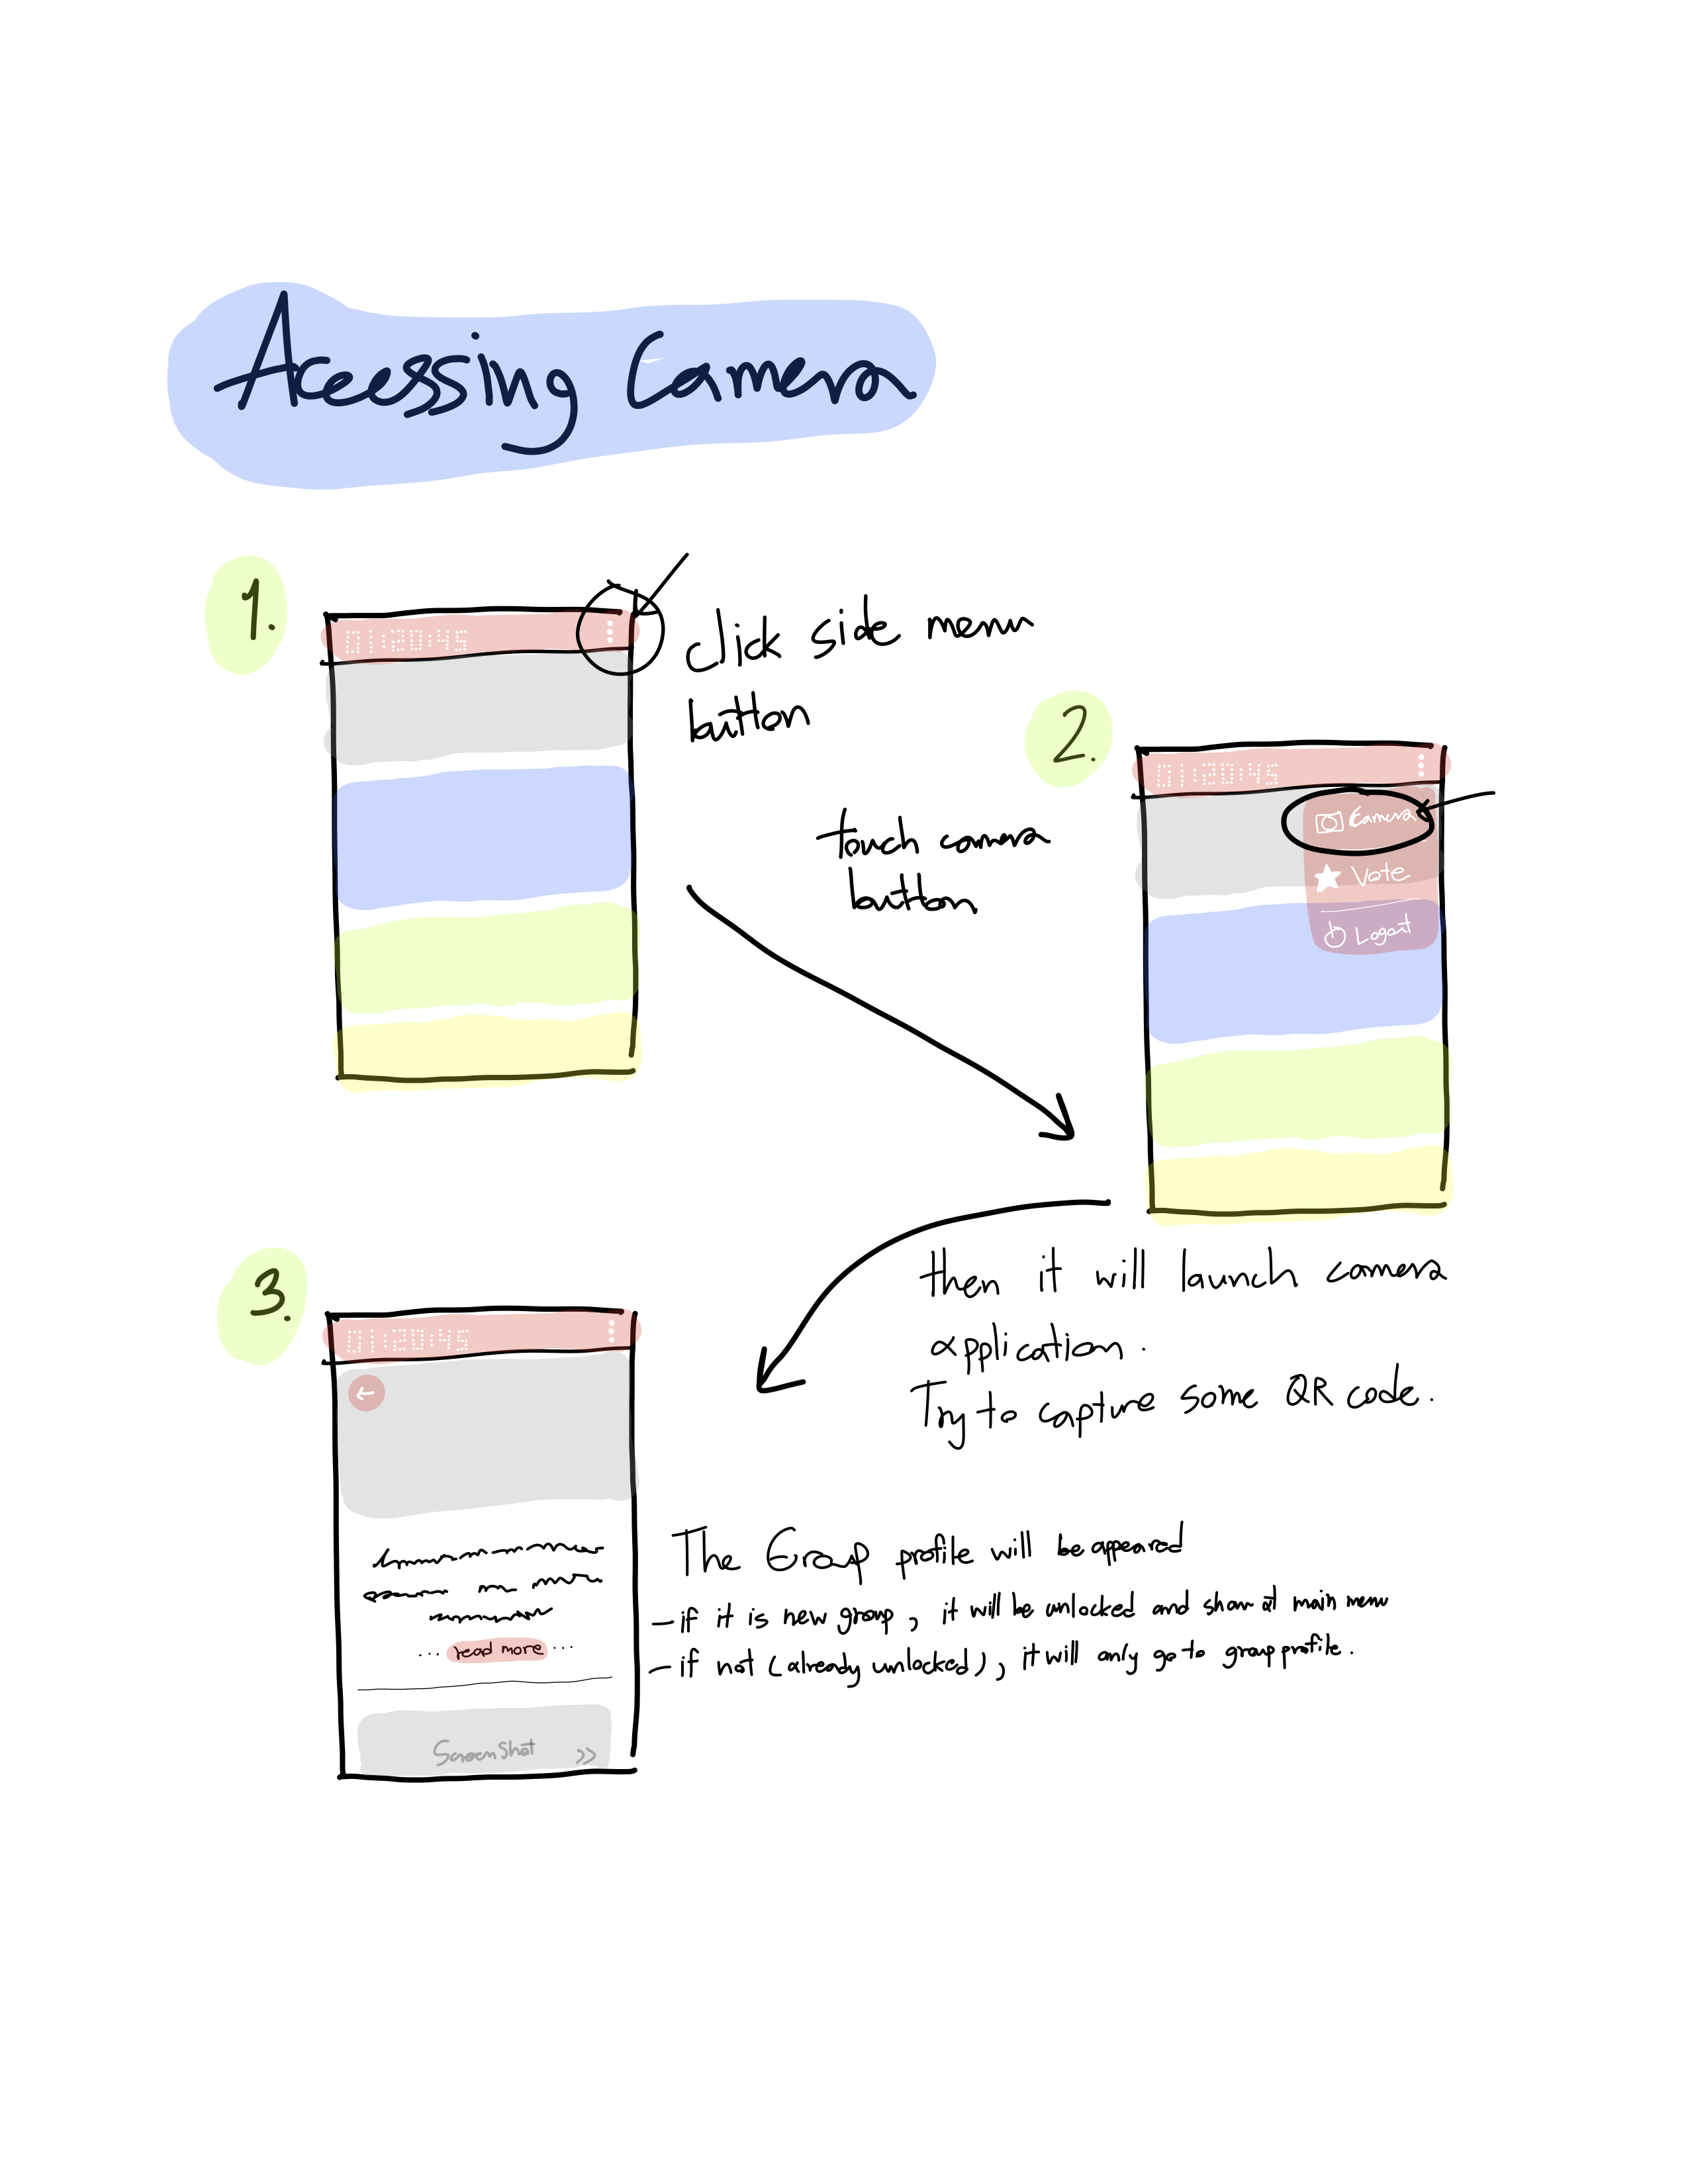 Accessing Camera
1.
01:20:45
click side menu
button
2.
01:20:45
Camera
Vote
Logout
touch camera
button
then it will launch camera
application.
Try to capture some QR code.
3.
01:20:45
... read more ...
Screenshot >>
The Group profile will be appeared
- if it is new group, it will be unlocked and show at main menu
- if not (already unlocked), it will only go to group profile.